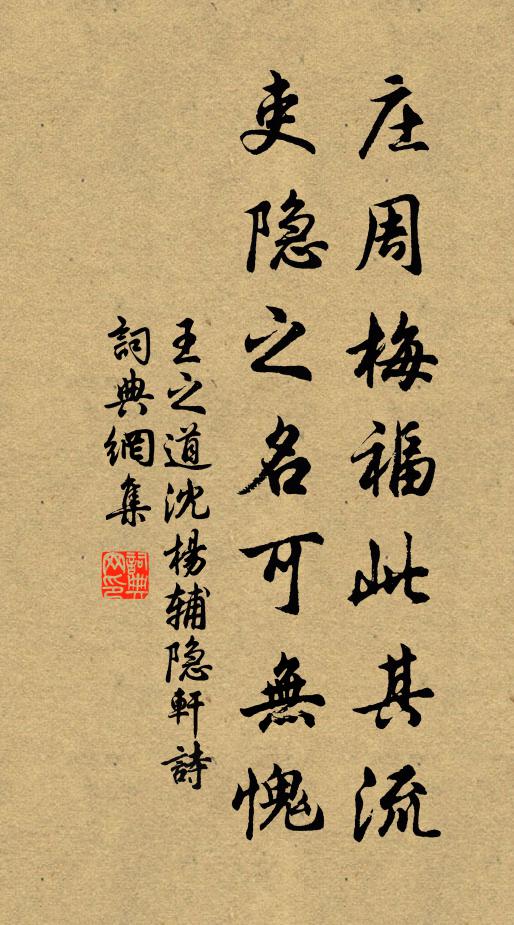 庄周梅福此其流
吏隐之名可無愧
王之道沈楊辅隐軒詩
詞典網集
詞典網印